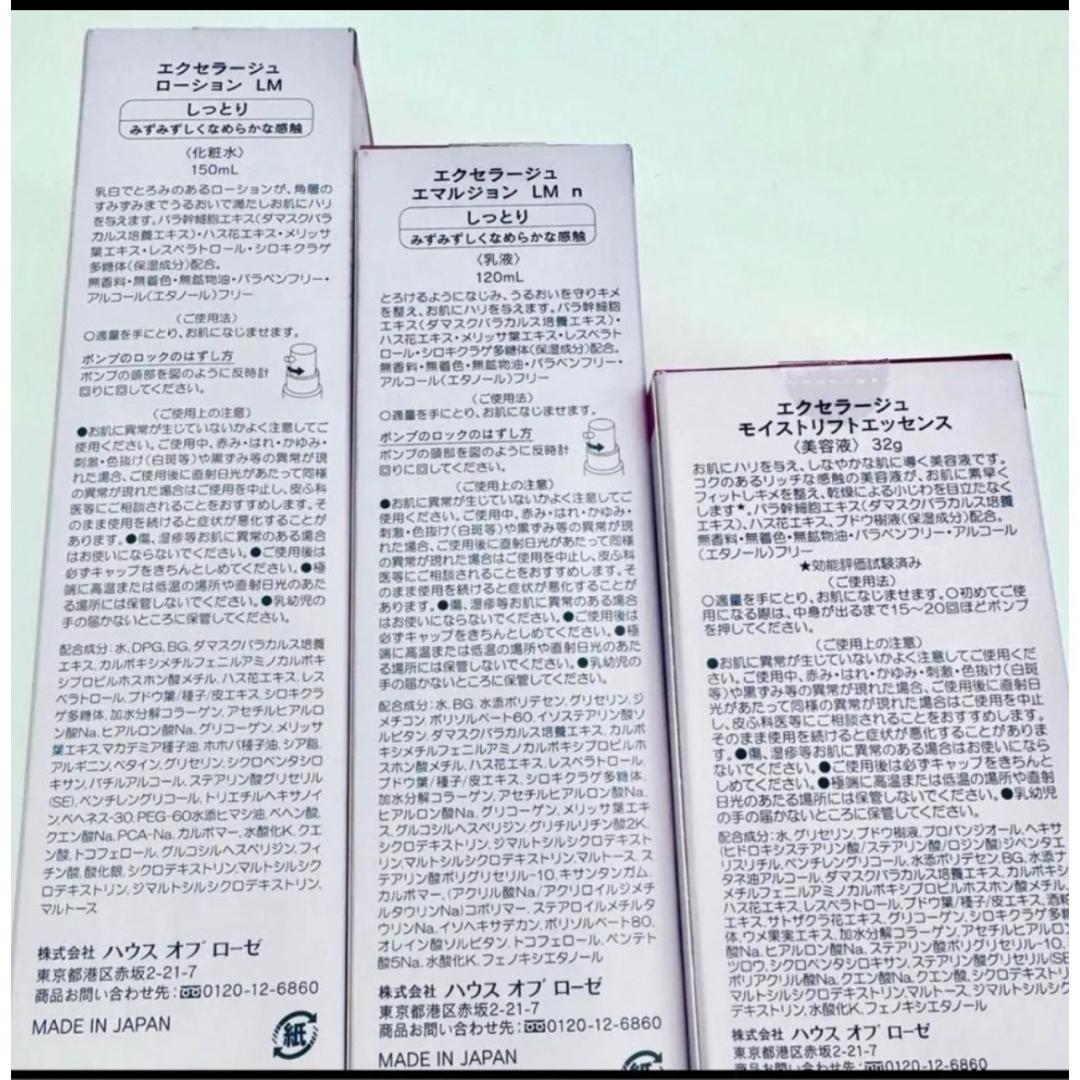 エクセラージュ
ローション LM
しっとり
みずみずしくなめらかな感触
〈化粧水〉
150mL
乳白でとろみのあるローションが、角層の
すみずみまでうるおいで満たしお肌にハリ
を与えます。バラ幹細胞エキス(ダマスクバラ
カルス培養エキス)・ハス花エキス・メリッサ
葉エキス・レスベラトロール・シロキクラゲ
多糖体(保湿成分)配合。
無香料・無着色・無鉱物油・パラベンフリー・
アルコール(エタノール)フリー
〈ご使用法〉
○適量を手にとり、お肌になじませます。
ポンプのロックのはずし方
ポンプの頭部を図のように反時計
回りに回してください。
〈ご使用上の注意〉
●お肌に異常が生じていないかよく注意してご
使用ください。ご使用中、赤み・はれ・かゆみ・
刺激・色抜け(白斑等)や黒ずみ等の異常が現
れた場合、ご使用後に直射日光があたって同様
の異常が現れた場合はご使用を中止し、皮ふ科
医等にご相談されることをおすすめします。そ
のまま使用を続けると症状が悪化することが
あります。●傷、湿疹等お肌に異常のある場合
はお使いにならないでください。●ご使用後は
必ずキャップをきちんとしめてください。●極
端に高温または低温の場所や直射日光のあた
る場所には保管しないでください。●乳幼児の
手の届かないところに保管してください。
配合成分:水、DPG、BG、ダマスクバラカルス培養
エキス、カルボキシメチルフェニルアミノカルボキ
シプロピルホスホン酸メチル、ハス花エキス、レス
ベラトロール、ブドウ葉/種子/皮エキス、シロキクラ
ゲ多糖体、加水分解コラーゲン、アセチルヒアルロ
ン酸Na、ヒアルロン酸Na、グリコーゲン、メリッサ
葉エキス、マカデミア種子油、ホホバ種子油、シア脂、
アルギニン、ベタイン、グリセリン、シクロペンタシロ
キサン、バチルアルコール、ステアリン酸グリセリル
(SE)、ペンチレングリコール、トリエチルヘキサノイ
ン、ベヘネス-30、PEG-60水添ヒマシ油、ベヘン酸、
クエン酸Na、PCA-Na、カルボマー、水酸化K、クエ
ン酸、トコフェロール、グルコシルヘスペリジン、フィ
チン酸、酸化銀、シクロデキストリン、マルトシルシク
ロデキストリン、ジマルトシルシクロデキストリン、
マルトース
株式会社 ハウス オブ ローゼ
東京都港区赤坂2-21-7
商品お問い合わせ先:0120-12-6860
MADE IN JAPAN
紙
エクセラージュ
エマルジョン LM n
しっとり
みずみずしくなめらかな感触
〈乳液〉
120mL
とろけるようになじみ、うるおいを守りキメ
を整え、お肌にハリを与えます。バラ幹細胞
エキス(ダマスクバラカルス培養エキス)・
ハス花エキス・メリッサ葉エキス・レスベラト
ロール・シロキクラゲ多糖体(保湿成分)配合。
無香料・無着色・無鉱物油・パラベンフリー・
アルコール(エタノール)フリー
〈ご使用法〉
○適量を手にとり、お肌になじませます。
ポンプのロックのはずし方
ポンプの頭部を図のように反時計
回りに回してください。
〈ご使用上の注意〉
●お肌に異常が生じていないかよく注意してご
使用ください。ご使用中、赤み・はれ・かゆみ・
刺激・色抜け(白斑等)や黒ずみ等の異常が現
れた場合、ご使用後に直射日光があたって同様
の異常が現れた場合はご使用を中止し、皮ふ科
医等にご相談されることをおすすめします。そ
のまま使用を続けると症状が悪化することが
あります。●傷、湿疹等お肌に異常のある場合
はお使いにならないでください。●ご使用後は
必ずキャップをきちんとしめてください。●極
端に高温または低温の場所や直射日光のあた
る場所には保管しないでください。●乳幼児の
手の届かないところに保管してください。
配合成分:水、BG、水添ポリデセン、グリセリン、ジ
メチコン、ポリソルベート60、イソステアリン酸ソ
ルビタン、ダマスクバラカルス培養エキス、カルボ
キシメチルフェニルアミノカルボキシプロピルホ
スホン酸メチル、ハス花エキス、レスベラトロール、
ブドウ葉/種子/皮エキス、シロキクラゲ多糖体、
加水分解コラーゲン、アセチルヒアルロン酸Na、
ヒアルロン酸Na、グリコーゲン、メリッサ葉エキ
ス、グルコシルヘスペリジン、グリチルリチン酸2K、
シクロデキストリン、ジマルトシルシクロデキスト
リン、マルトシルシクロデキストリン、マルトース、ス
テアリン酸ポリグリセリル-10、キサンタンガム、
カルボマー、(アクリル酸Na/アクリロイルジメチ
ルタウリンNa)コポリマー、ステアロイルメチルタ
ウリンNa、イソヘキサデカン、ポリソルベート80、
オレイン酸ソルビタン、トコフェロール、ペンテト
酸5Na、水酸化K、フェノキシエタノール
株式会社 ハウス オブ ローゼ
東京都港区赤坂2-21-7
商品お問い合わせ先:0120-12-6860
MADE IN JAPAN
エクセラージュ
モイストリフトエッセンス
〈美容液〉 32g
お肌にハリを与え、しなやかな肌に導く美容液です。
コクのあるリッチな感触の美容液が、お肌に素早く
フィットしキメを整え、乾燥による小じわを目立たなく
します★。バラ幹細胞エキス(ダマスクバラカルス培養
エキス)、ハス花エキス、ブドウ樹液(保湿成分)配合。
無香料・無着色・無鉱物油・パラベンフリー・アルコール
(エタノール)フリー
★効能評価試験済み
〈ご使用法〉
○適量を手にとり、お肌になじませます。○初めてご使
用になる際は、中身が出るまで15〜20回ほどポンプ
を押してください。
〈ご使用上の注意〉
●お肌に異常が生じていないかよく注意してご使用くだ
さい。ご使用中、赤み・はれ・かゆみ・刺激・色抜け(白斑
等)や黒ずみ等の異常が現れた場合、ご使用後に直射日
光があたって同様の異常が現れた場合はご使用を中止
し、皮ふ科医等にご相談されることをおすすめします。
そのまま使用を続けると症状が悪化することがありま
す。●傷、湿疹等お肌に異常のある場合はお使いになら
ないでください。●ご使用後は必ずキャップをきちんと
しめてください。●極端に高温または低温の場所や直射
日光のあたる場所には保管しないでください。●乳幼児
の手の届かないところに保管してください。
配合成分:水、グリセリン、ブドウ樹液、プロパンジオール、ヘキサ
(ヒドロキシステアリン酸/ステアリン酸/ロジン酸)ジペンタエ
リスリチル、ペンチレングリコール、水添ポリデセン、BG、水添ナ
タネ油アルコール、ダマスクバラカルス培養エキス、カルボキシ
メチルフェニルアミノカルボキシプロピルホスホン酸メチル、
ハス花エキス、レスベラトロール、ブドウ葉/種子/皮エキス、酒粕
エキス、サトザクラ花エキス、グリコーゲン、シロキクラゲ多糖
体、ウメ果実エキス、加水分解コラーゲン、アセチルヒアルロン
酸Na、ヒアルロン酸Na、ステアリン酸ポリグリセリル-10、
ツロウ、シクロペンタシロキサン、ステアリン酸グリセリル(SE
ポリアクリル酸Na、クエン酸Na、クエン酸、シクロデキストリ
マルトシルシクロデキストリン、マルトース、ジマルトシルシク
デキストリン、水酸化K、フェノキシエタノール
株式会社 ハウス オブ ローゼ
東京都港区赤坂2-21-7
商品お問い合わせ先:0120-12-6860